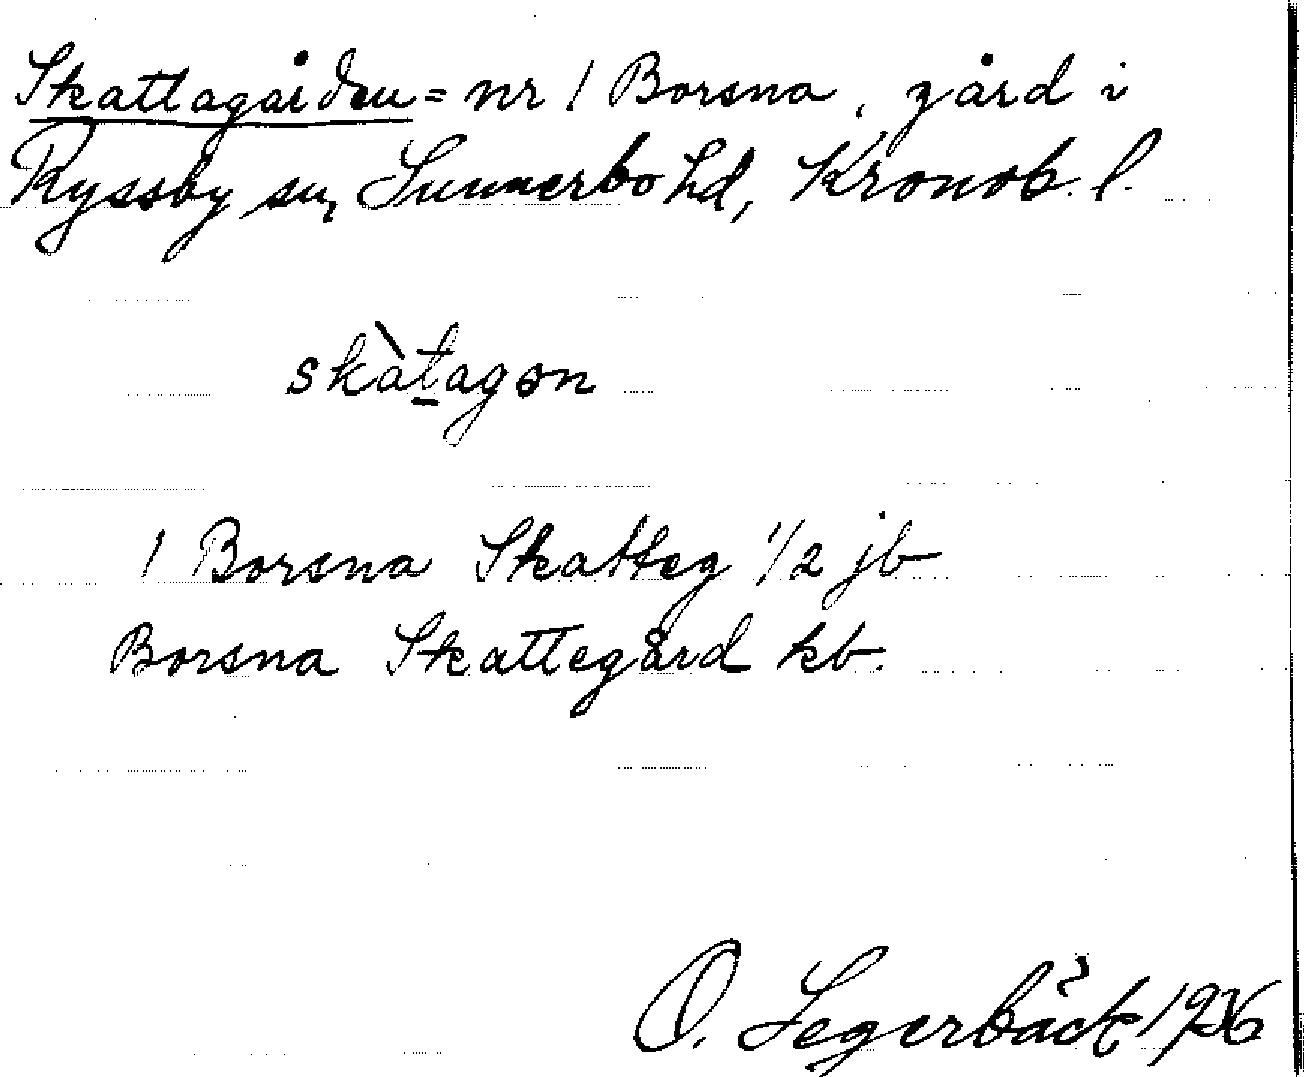 Skattagården = nr 1 Borsna, gård i
Ryssby sn, Sunnerbo hd, Kronob. l.
skàt̠agən
1 Borsna Skatteg 1/2 jb
Borsna Skattegård kb.
O. Segerbäck 1936